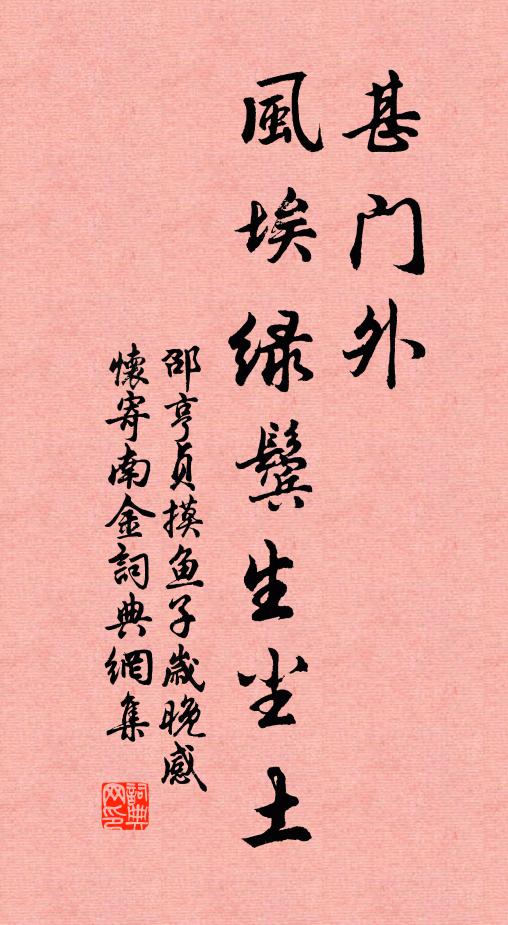 甚门外
風埃绿鬓生尘土
邵亨貞摸鱼子歲晚感
懷寄南金詞典網集
詞典网印